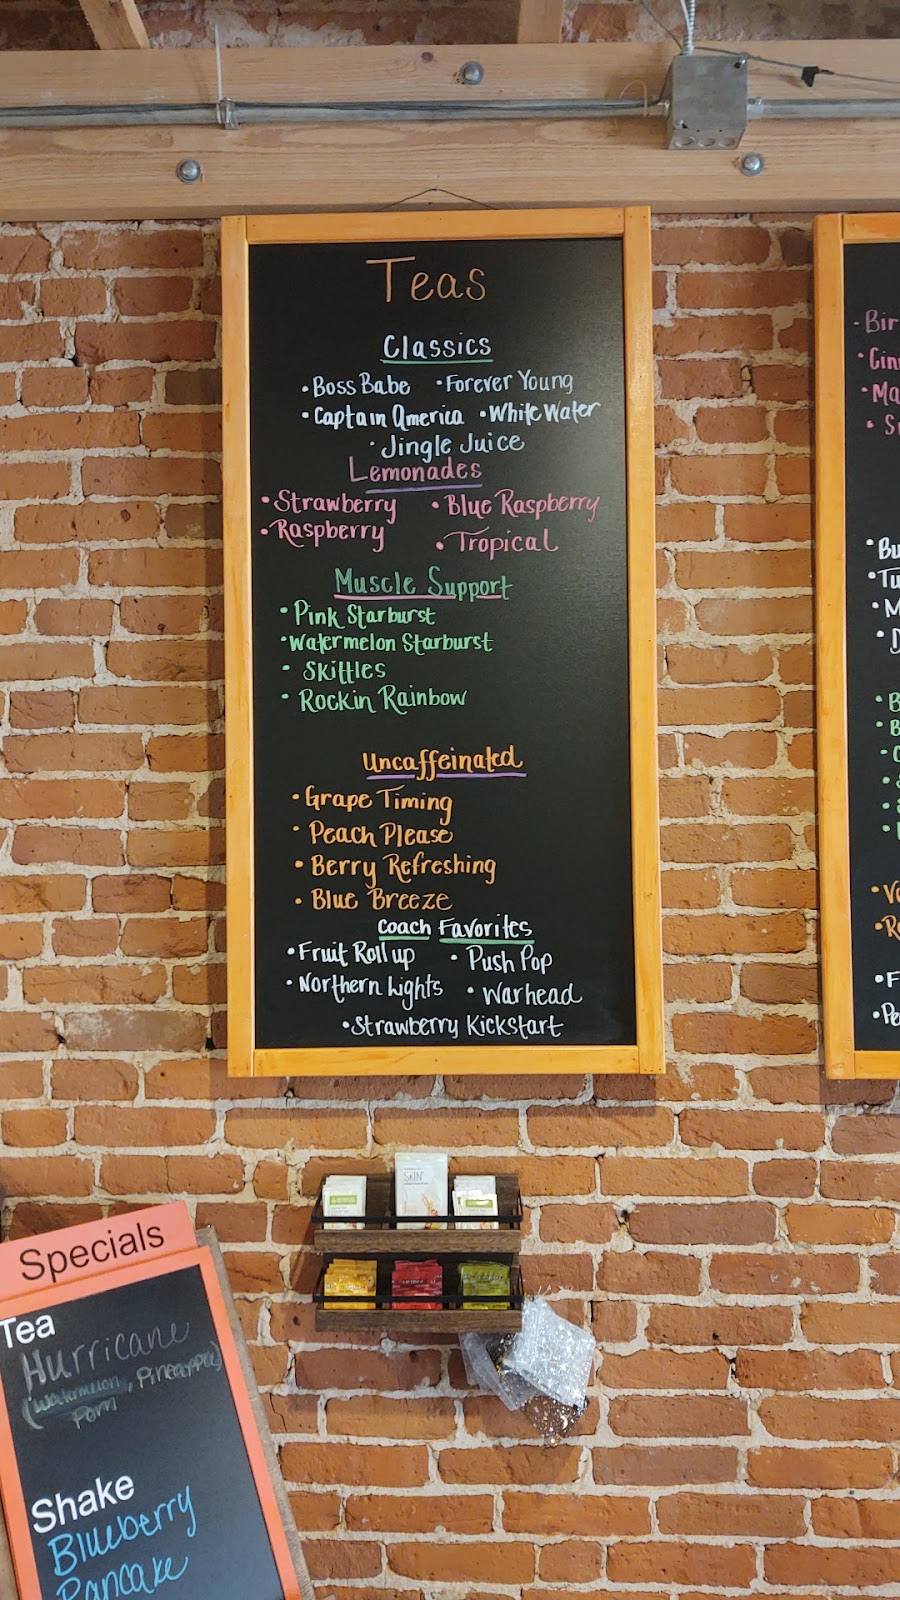 Teas
Classics
• Boss Babe • Forever Young
• Captain America • White Water
• Jingle Juice
Lemonades
• Strawberry • Blue Raspberry
• Raspberry • Tropical
Muscle Support
• Pink Starburst
• Watermelon Starburst
• Skittles
• Rockin Rainbow
Uncaffeinated
• Grape Timing
• Peach Please
• Berry Refreshing
• Blue Breeze
Coach Favorites
• Fruit Roll up • Push Pop
• Northern Lights • Warhead
• Strawberry Kickstart
SKIN
Specials
Tea
Hurricane
(Watermelon, Pineapple)
Shake
Blueberry
Pancake